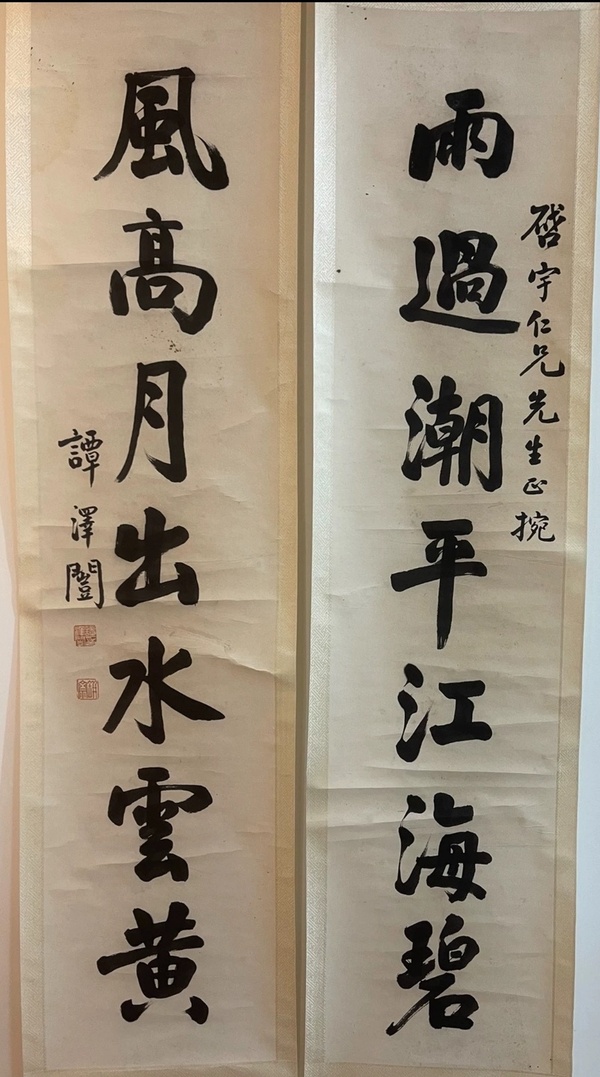 雨過潮平江海碧
啓宇仁兄先生正捥
風高月出水雲黄
譚澤闓